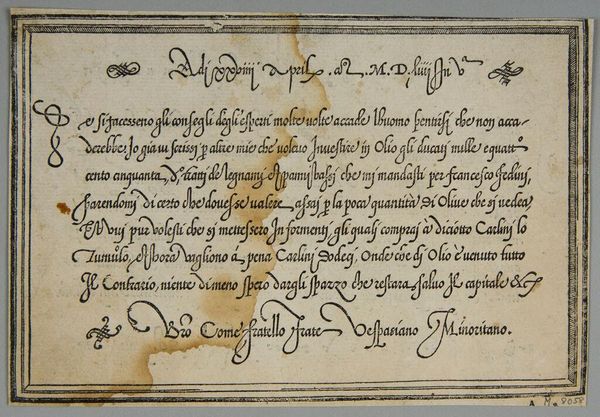 Adi xxviiii April .M.D.liiii In Vª
Se si facesseno gli consegli degli esperti molte volte accade l'huomo pentirsi che non acca-
derebbe: Io gia vi scrissi p altre mie che voleuo Inuestire in Olio gli ducati mille e quattº
cento cinquanta, tratti de legnami e Panni bassi che mi mandasti per francesco fedini,
parendomi di certo che douesse ualere assai p la poca quantità di Oliue che si vedea
Et Vui pur volesti che si mettessero In formenti, gli quali comprai à diciotto Carlini lo
Tumulo, et hora vagliono à pena Carlini dodeci. Onde che di Olio è uenuto tutto
Il Contrario, niente di meno spero dargli spazzo che restara saluo Il capitale &c
Vrõ Come fratello frate Vespasiano Minoritano.
A M 8058